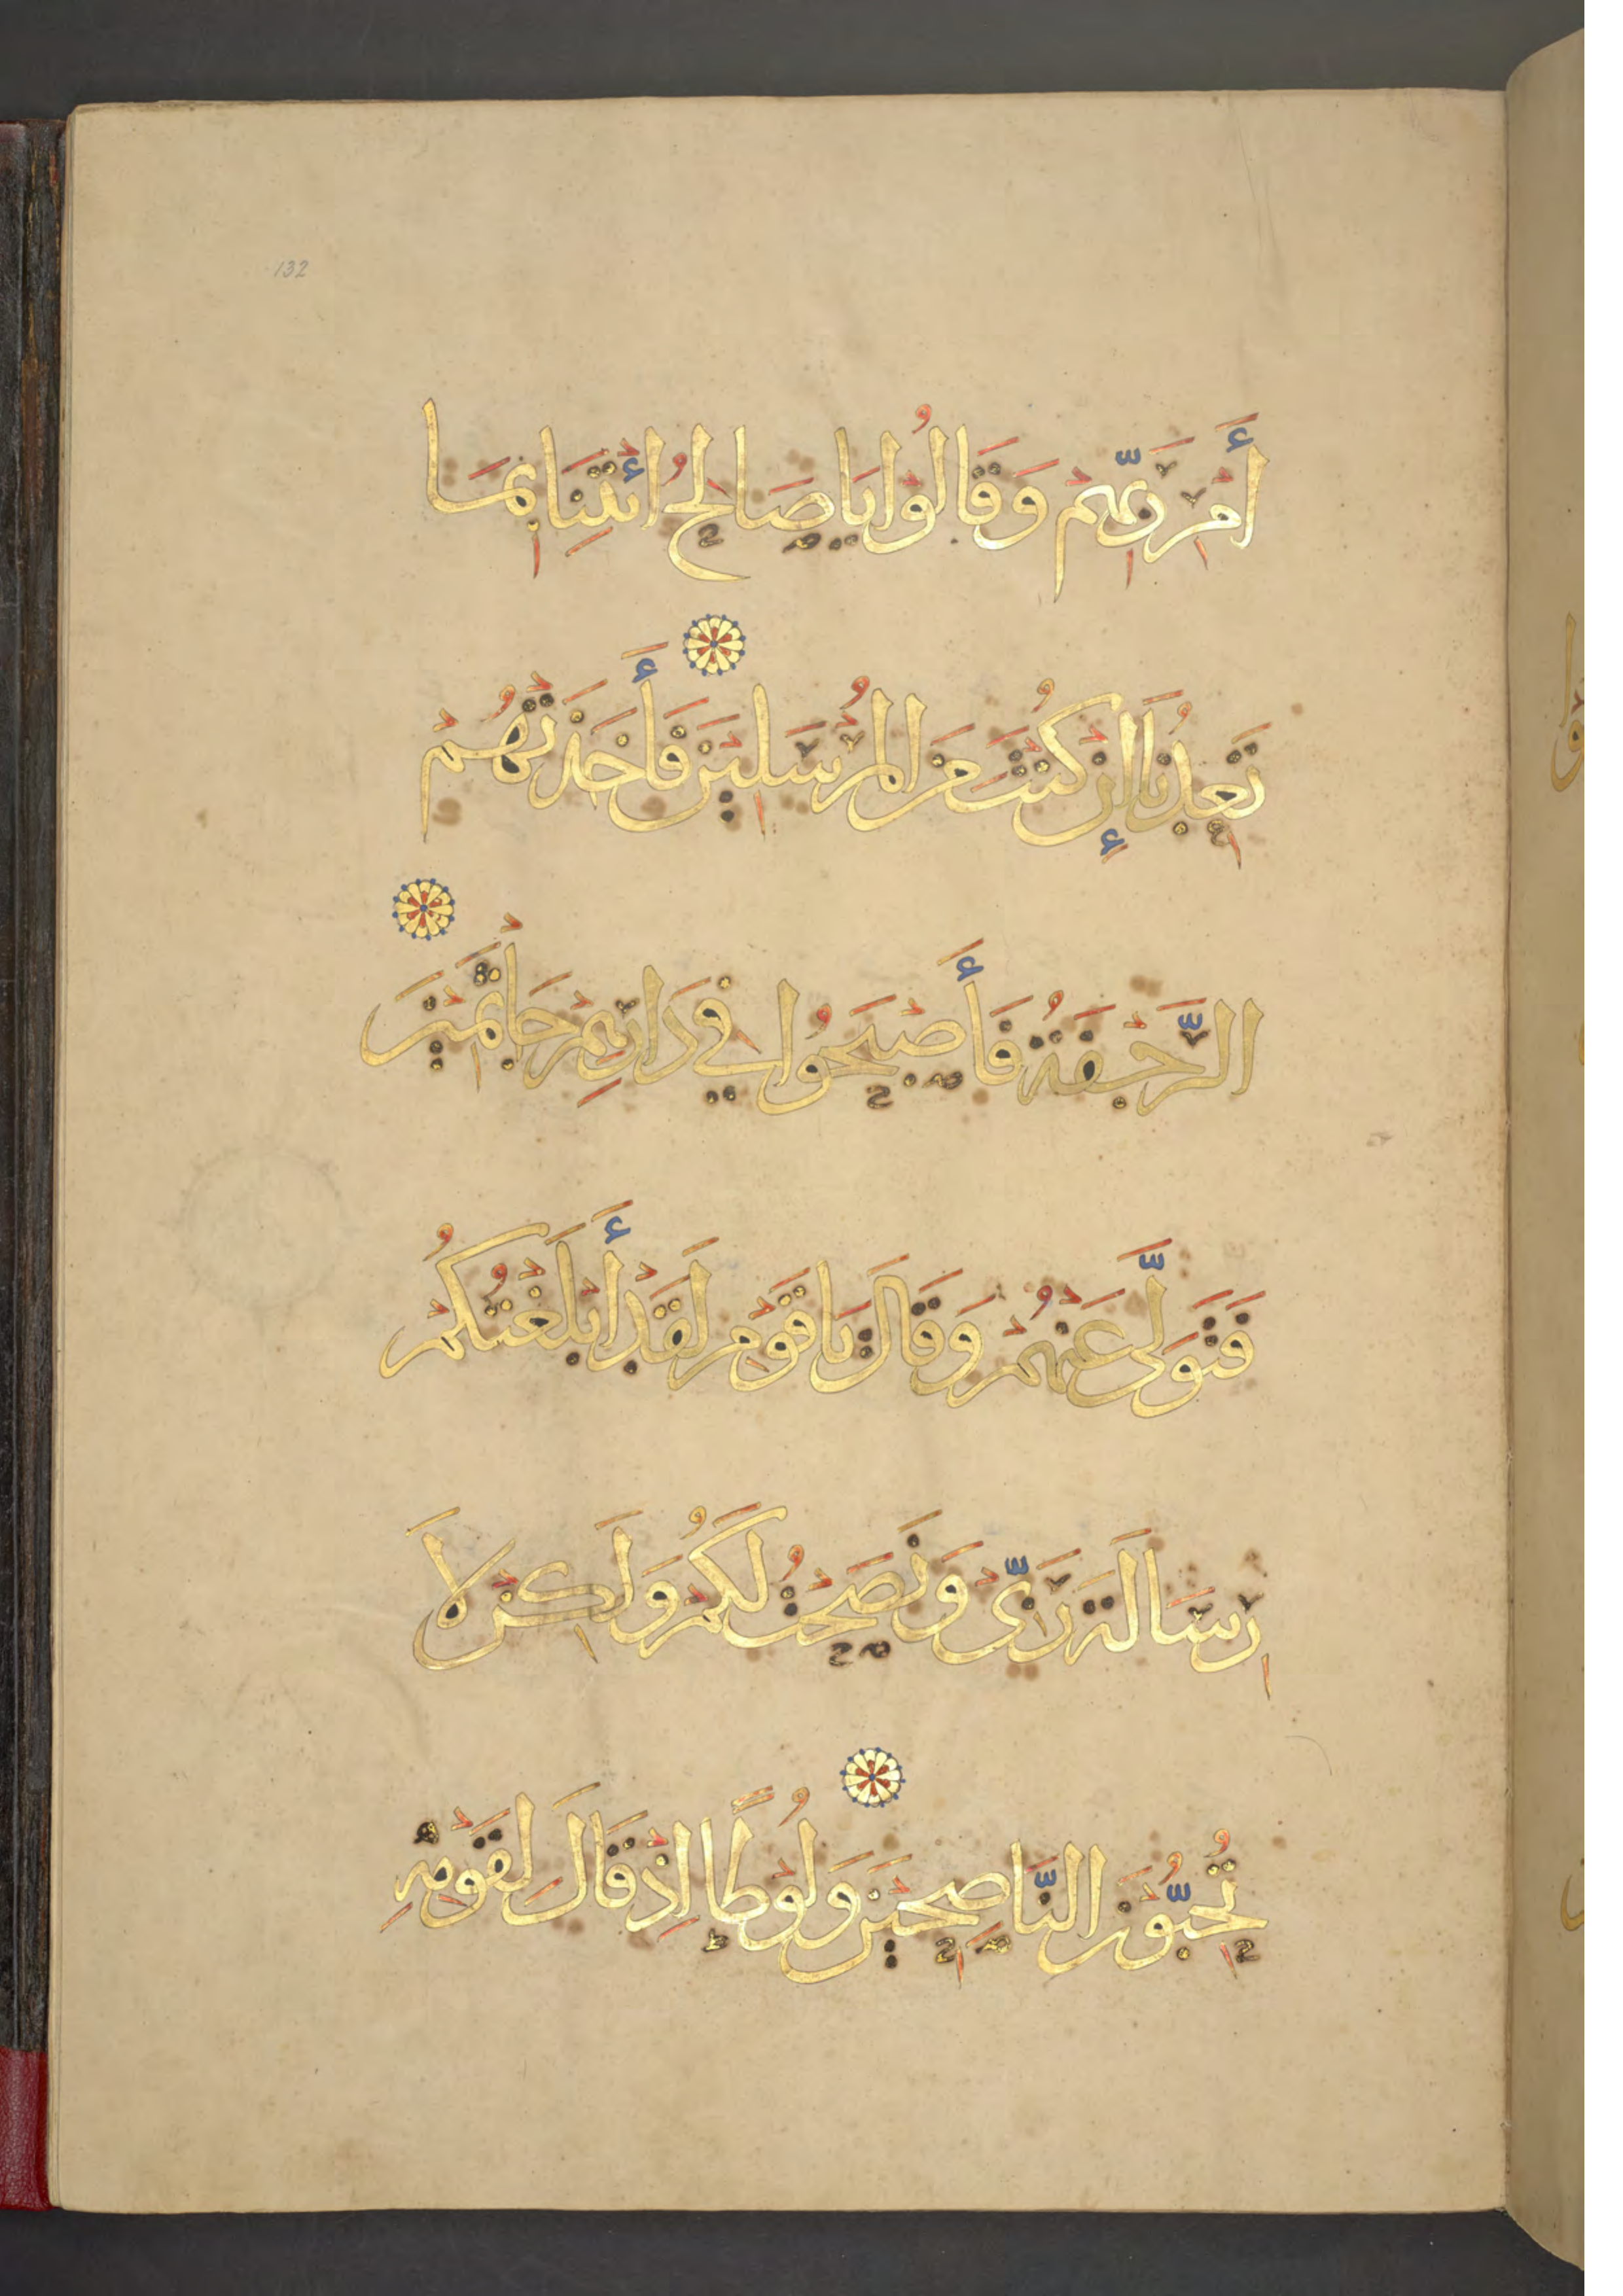 132
أَمْرِ رَبِّهِمْ وَقَالُوْا يَا صَالِحُ ائْتِنَا بِمَا
تَعِدُنَا إِنْ كُنْتَ مِنَ الْمُرْسَلِيْنَ فَأَخَذَتْهُمْ
الرَّجْفَةُ فَأَصْبَحُوا فِيْ دَارِهِمْ جَاثِمِيْنَ
فَتَوَلَّى عَنْهُمْ وَقَالَ يَا قَوْمِ لَقَدْ أَبْلَغْتُكُمْ
رِسَالَةَ رَبِّيْ وَنَصَحْتُ لَكُمْ وَلَكِنْ لَا
تُحِبُّوْنَ النَّاصِحِيْنَ وَلُوْطًا إِذْ قَالَ لِقَوْمِهِ